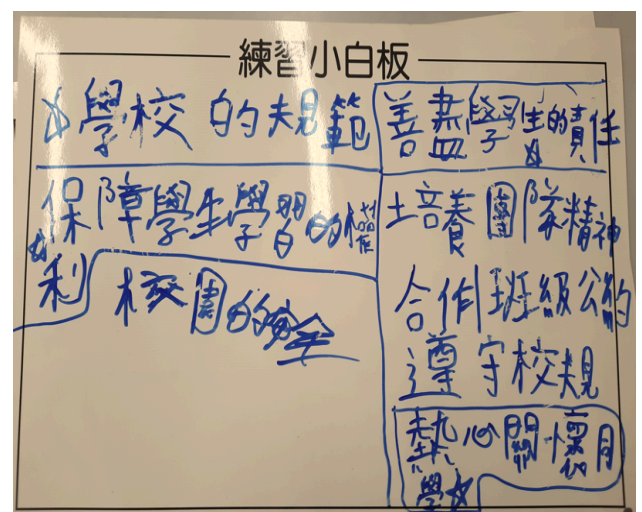 練習小白板
學校的規範
保障學生學習的權
利
校園的安全
善盡學生的責任
培養團隊精神
合作班級公約
遵守校規
熱心關懷同
學